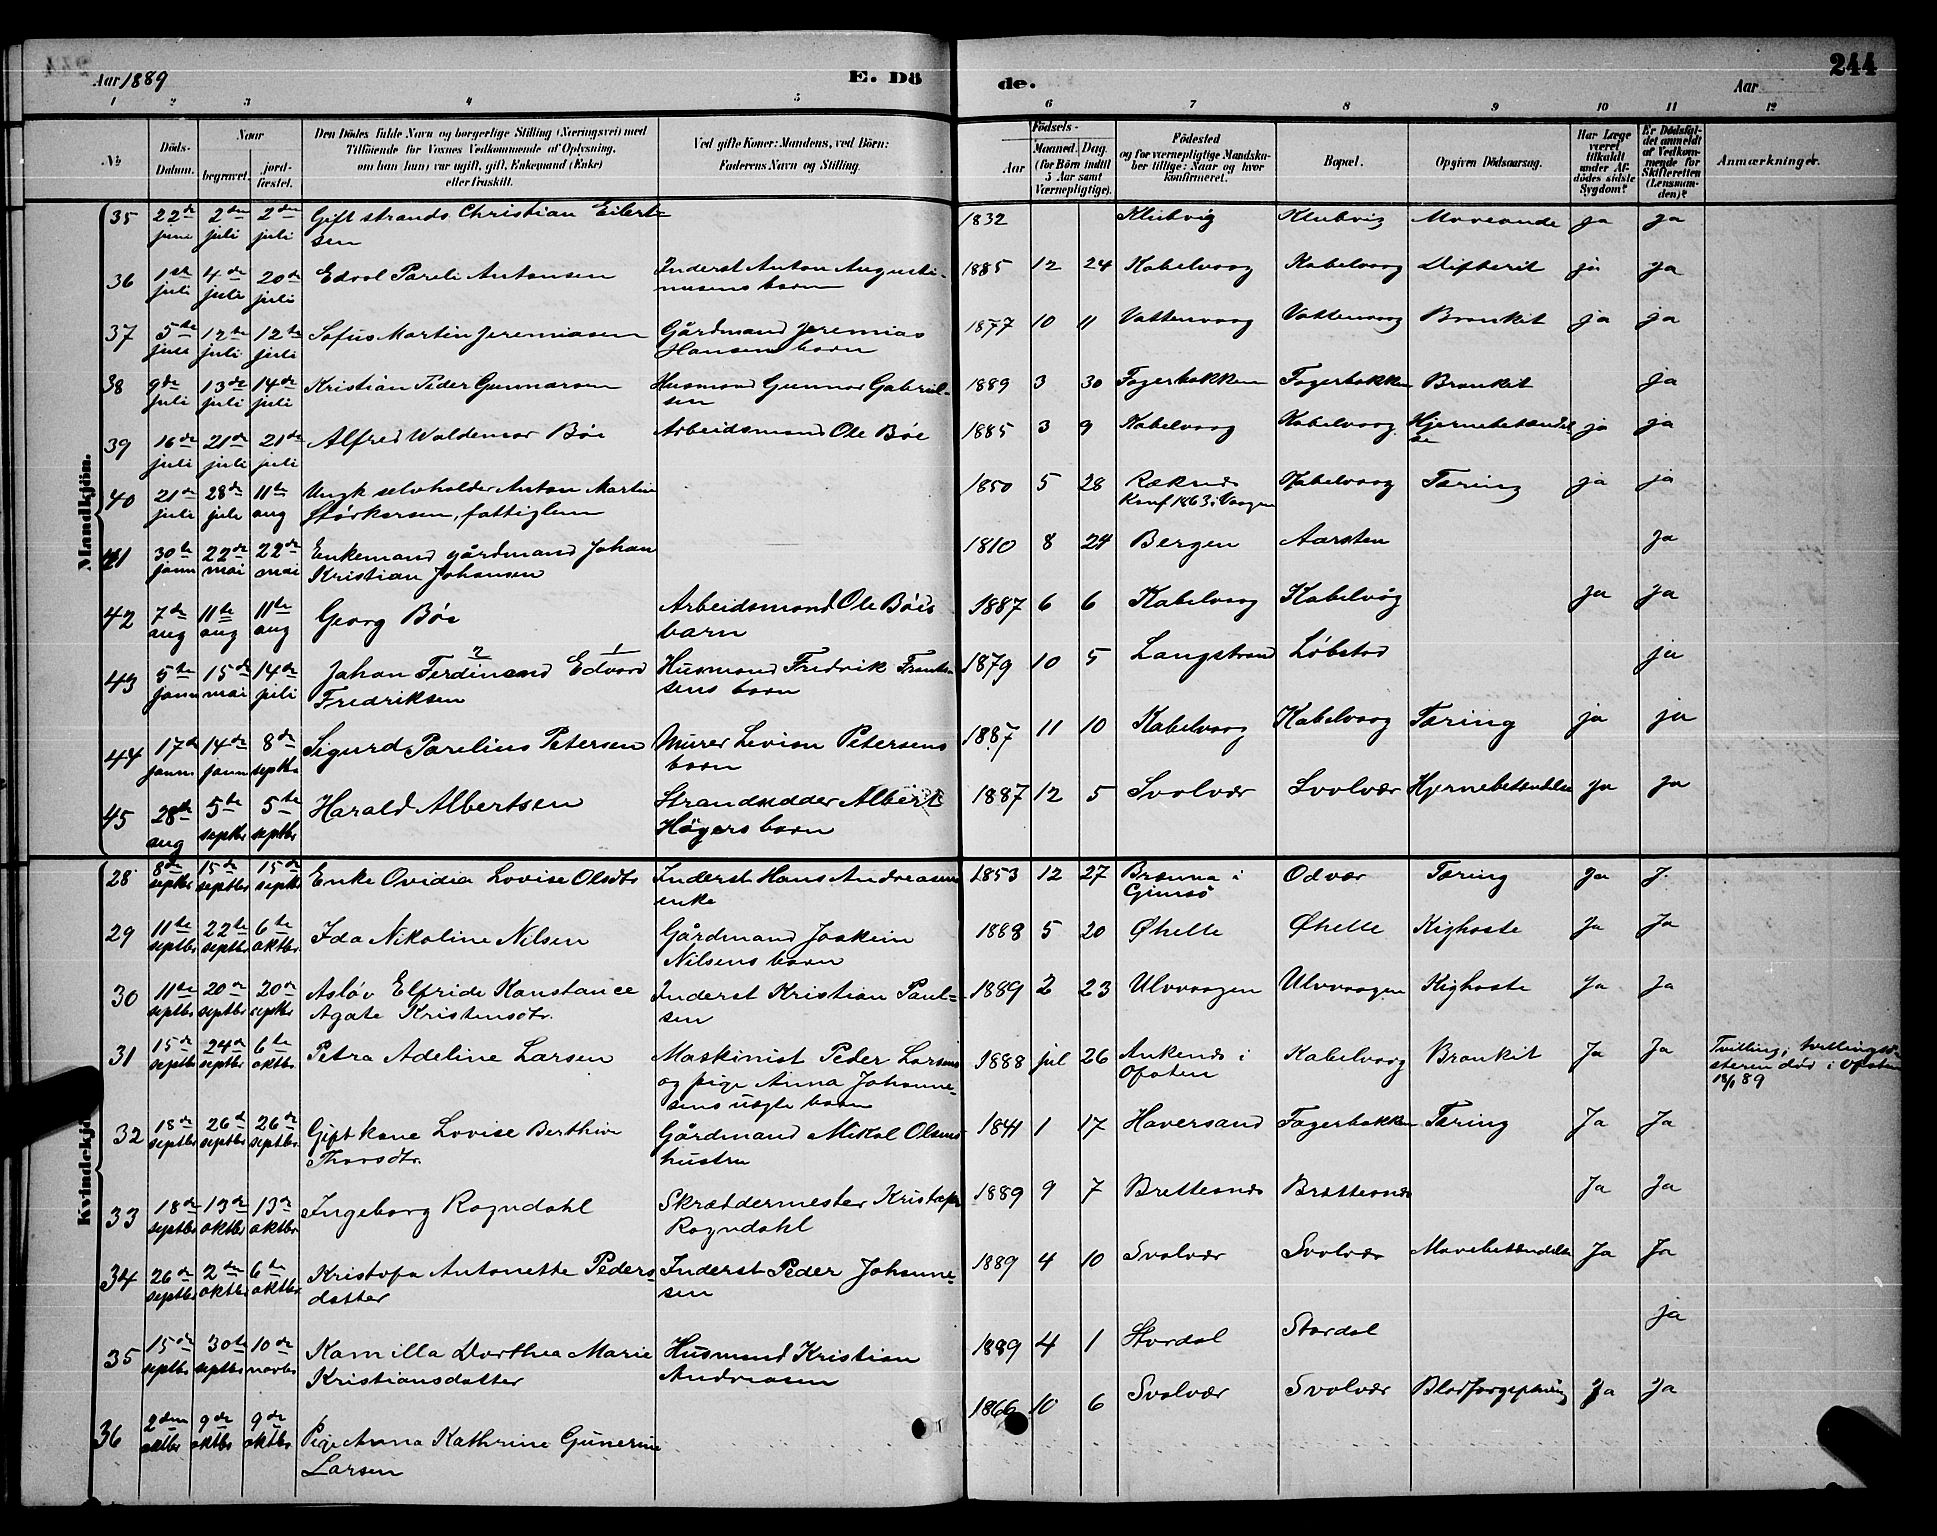 Aar 1889 E. Dö
de. Aar 244
1 2 3 4 5 6 7 8 9 10 11 12
No
Döds-Datum.
Naar begravet. jordfæstet.
Den Dödes fulde Navn og borgerlige Stilling (Næringsvei) med
Tilföiende for Voxnes Vedkommende af Oplysning,
om han (hun) var ugift, gift, Enkemand (Enke)
eller fraskilt.
Ved gifte Koner: Mandens, ved Börn:
Faderens Navn og Stilling.
Födsels-
Aar Maaned. Dag.
(for Börn indtil
5 Aar samt
Værnepligtige).
Födested
og for værnepligtige Mandska-
ber tillige: Naar og hvor
konfirmeret.
Bopæl.
Opgiven Dödsaarsag.
Har Læge
været
tilkaldt
under Af-
dödes sidste
Sygdom?
Er Dödsfal-
det anmeldt
af Vedkom-
mende for
Skifteretten
(Lensman-
den)?
Anmærkninger.
Mandkjön.
35 22de juni 2den juli 2den juli Gift strands Christian Eilert-
sen 1832 Klubvig Klubvig Mavevonde ja ja
36 1ste juli 4de juli 20de juli Edvol Pareli Antonsen Inderst Anton Augusti-
nusens barn 1885 12 24 Kabelvaag Kabelvaag Difterit ja ja
37 5te juli 12te juli 12te juli Sofus Martin Jeremiasen Gårdmand Jeremias
Hansens barn 1877 10 11 Vattenvaag Vattenvaag Bronkit ja ja
38 9de juli 13de juli 14de juli Kristian Peder Gunnarsen Husmand Gunnar Gabriel-
sen 1889 3 30 Fagerbakken Fagerbakken Bronkit ja
39 16de juli 21de juli 21de juli Alfred Waldemar Böe Arbeidsmand Ole Böe 1885 3 9 Kabelvaag Kabelvaag Hjernebetændel-
se ja ja
40 21de juli 28de juli 11te aug Ungk selvholder Anton Martin
Störkersen, fattiglem 1850 5 28 Ræknes
Konf 1863 i Vaagen Kabelvaag Tæring ja ja
41 30te jann 22de mai 22de mai Enkemand gårdmand Johan
Kristian Johansen 1810 8 24 Bergen Aarsten ja
42 7de aug 11te aug 11te aug Georg Böe Arbeidsmand Ole Böes
barn 1887 6 6 Kabelvaag Kabelvåg ja ja
43 5te jann 15de mai 14de juli Johan Ferdinand 2 Edvard 1
Fredriksen Husmand Fredrik Frantsen-
sens barn 1879 10 5 Langstrand Löbstad ja
44 17de jann 14de jann 8de septbr Sigurd Parelius Petersen Murer Levion Petersens
barn 1887 11 10 Kabelvaag Kabelvaag Tæring ja ja
45 28de aug 5te septbr 5te septbr Harald Albertsen Strandsidder Albert
Högers barn 1887 12 5 Svolvær Svolvær Hjernebetændelse ja ja
Kvindekjön.
28 8de septbr 15de septbr 15de septbr Enke Ovidia Lovise Olsdtr Inderst Hans Andreasens
enke 1853 12 27 Brenna i
Gimsö Odvær Tæring Ja J.
29 11te septbr 22de septbr 6te oktbr Ida Nikoline Nilsen Gårdmand Joakim
Nilsens barn 1888 5 20 Øhelle Øhelle Kighoste Ja Ja
30 11te septbr 20de septbr 20de septbr Asløv Elfride Konstance
Agate Kristensdtr. Inderst Kristian Paul-
sen 1889 2 23 Ulvvaagen Ulvvaagen Kighoste Ja Ja
31 15de septbr 24de septbr 6te oktbr Petra Adeline Larsen Maskinist Peder Larsens
og pige Anna Johanne-
sens uægte barn 1888 jul 26 Ankenes i
Ofoten Kabelvaag Bronkit Ja Ja Tvilling; tvillingsö-
steren død i Ofoten
89
32 18de septbr 26de septbr 26de septbr Gift kone Lovise Berthine
Thorsdtr. Gårdmand Mikal Olsens
hustru 1841 1 17 Haversand Fagerbakken Tæring Ja Ja
33 18de septbr 13de oktbr 13de oktbr Ingeborg Rogndahl Skræddermester Kristofer
Rogndahl 1889 9 7 Brettesnes Brettesnes Ja Ja
34 26de septbr 2den oktbr 6te oktbr Kristofa Antonette Peders-
datter Inderst Peder Johanne-
sen 1889 4 10 Svolvær Svolvær Mavebetændelse Ja Ja
35 15de septbr 30te septbr 10de novbr Kamilla Dorthea Marie
Kristiansdatter Husmand Kristian
Andreasen 1889 4 1 Stordal Stordal ja
36 2den oktbr 9de oktbr 9de oktbr Pige Anna Kathrine Gunerine
Larsen 1866 10 6 Svolvær Svolvær Blodforgiftning Ja Ja